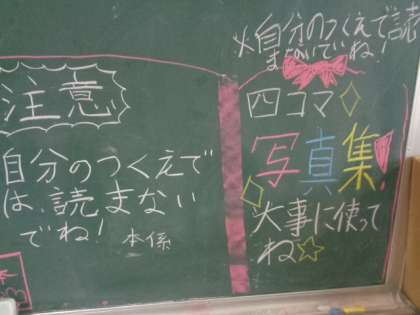 注意
自分のつくえで
は、読まない
でね!
本係
※自分のつくえで読
まないでね!
四コマ
写真集!
大事に使って
ね☆